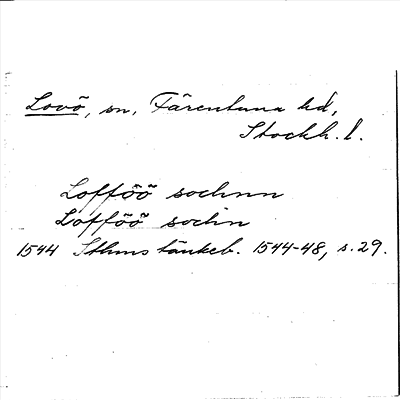 Lovö, sn, Färentuna hd,
Stockh. l.
Lofföö sochnn
Loffföö sochn
1544 Sthms tänkeb. 1544-48, s. 29.